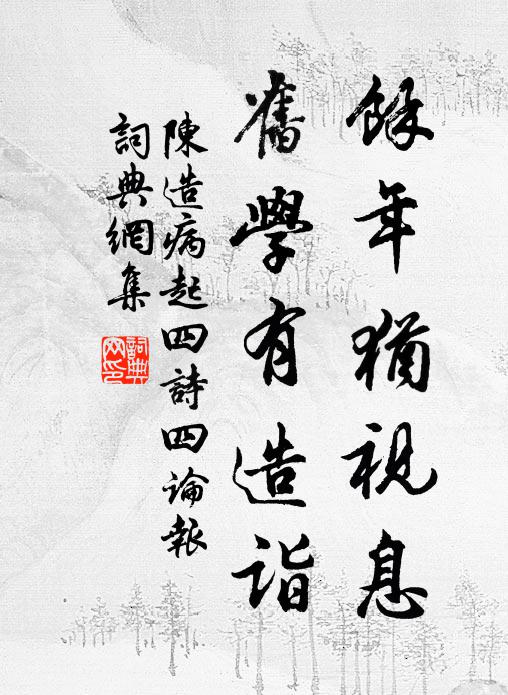 餘年猶視息
舊學有造詣
陳造病起四詩四論報
詞典網集
詞典網印